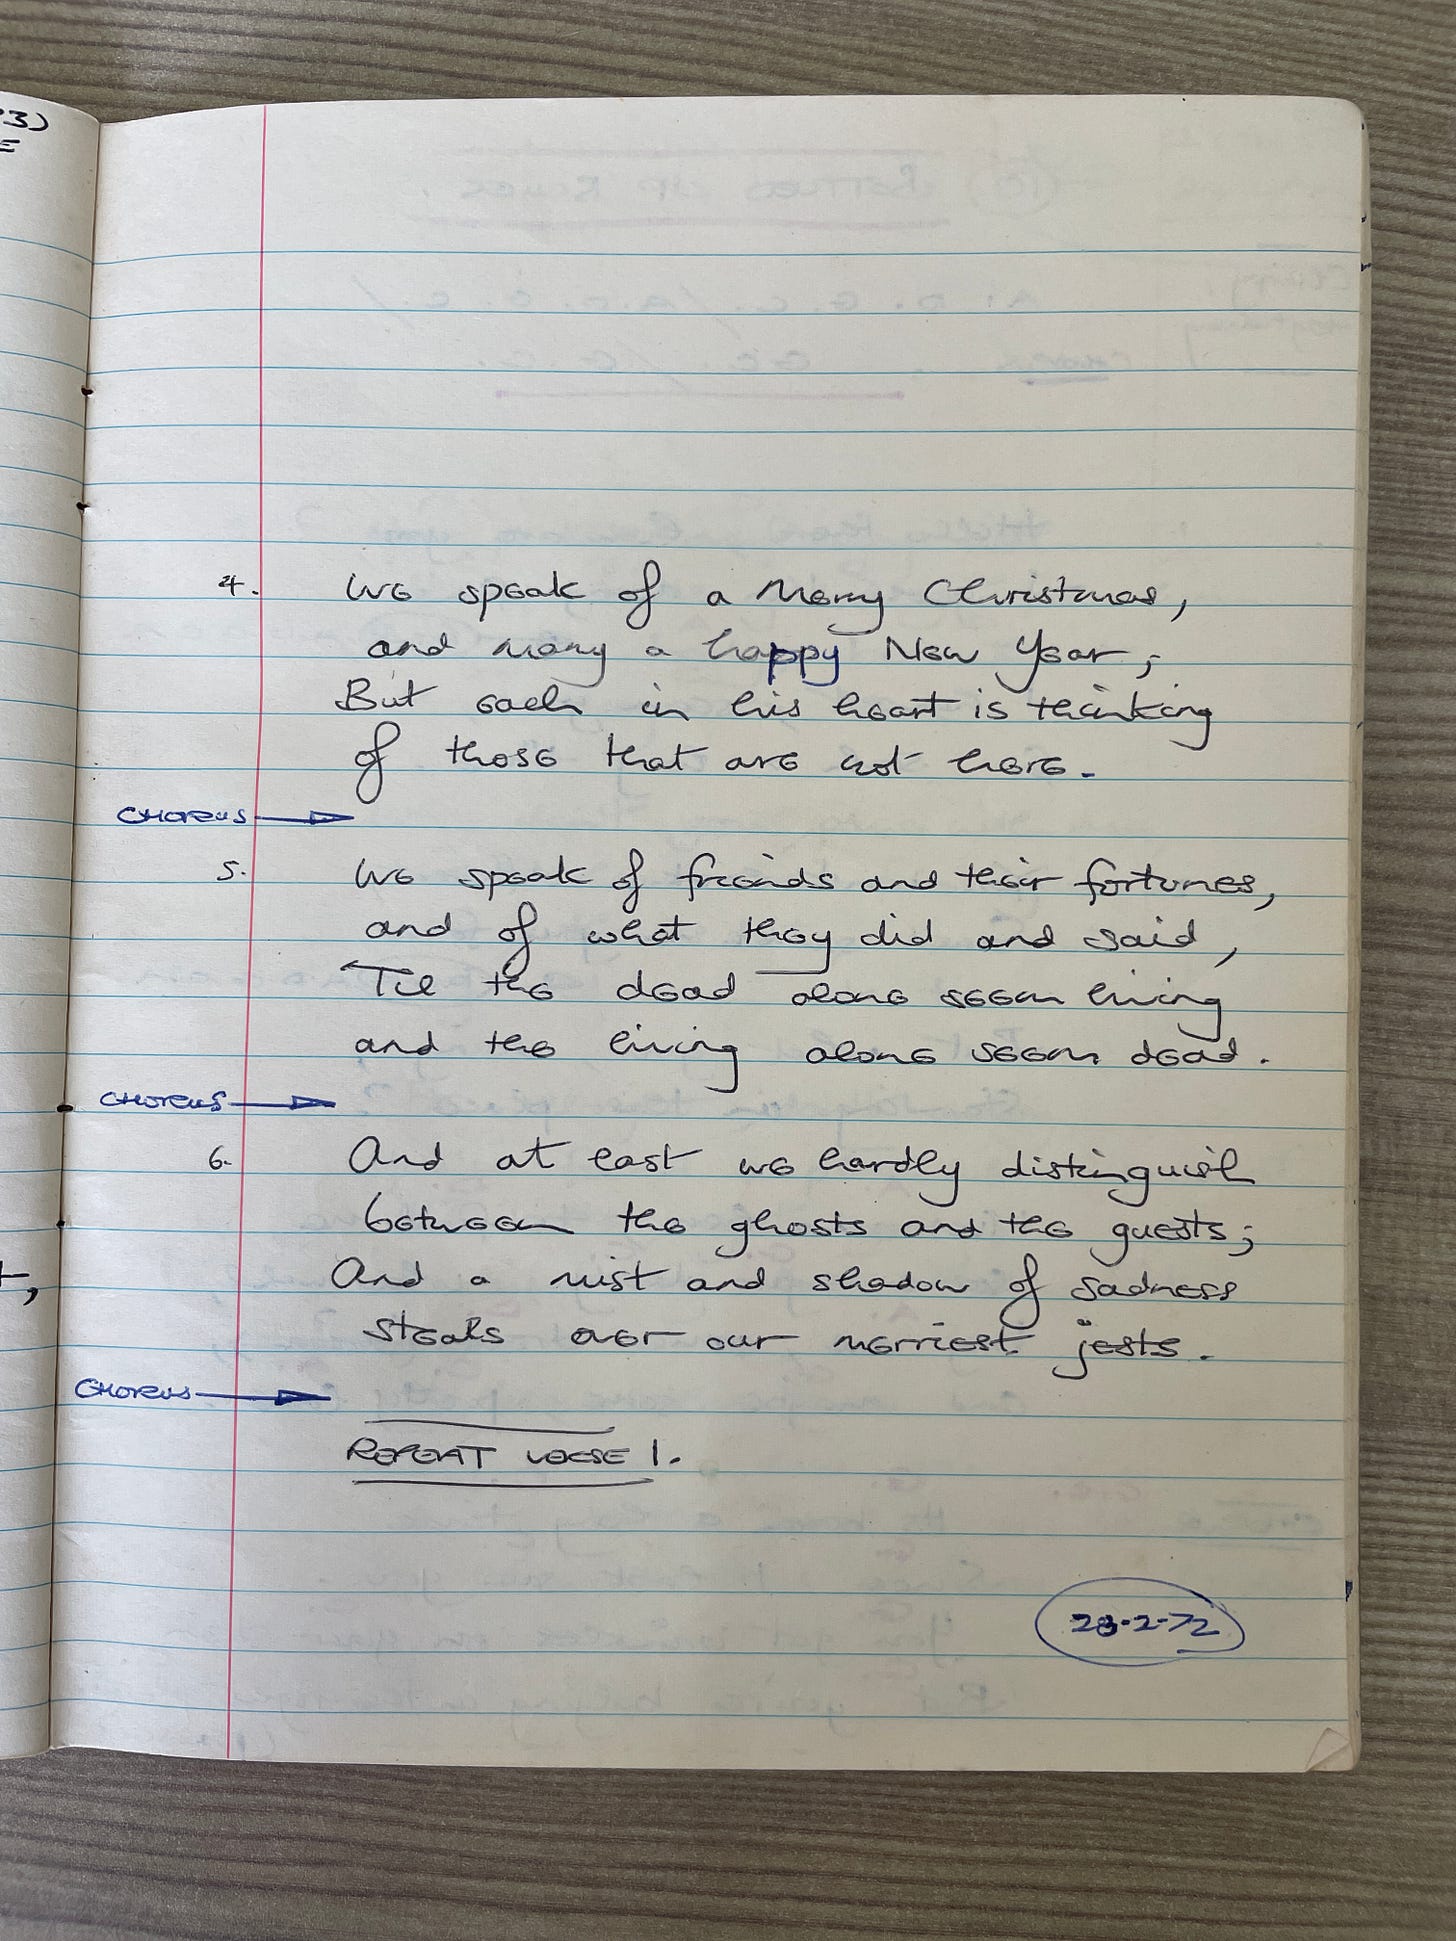 3)
E
4. We speak of a Merry Christmas,
and many a happy New Year;
But each in his heart is thinking
of those that are not here.
CHORUS
5. We speak of friends and their fortunes,
and of what they did and said,
'Til the dead alone seem living
and the living alone seem dead.
CHORUS
6. And at last we hardly distinguish
between the ghosts and the guests;
t,
And a mist and shadow of sadness
steals over our merriest jests.
CHORUS
REPEAT VERSE 1.
28-2-72